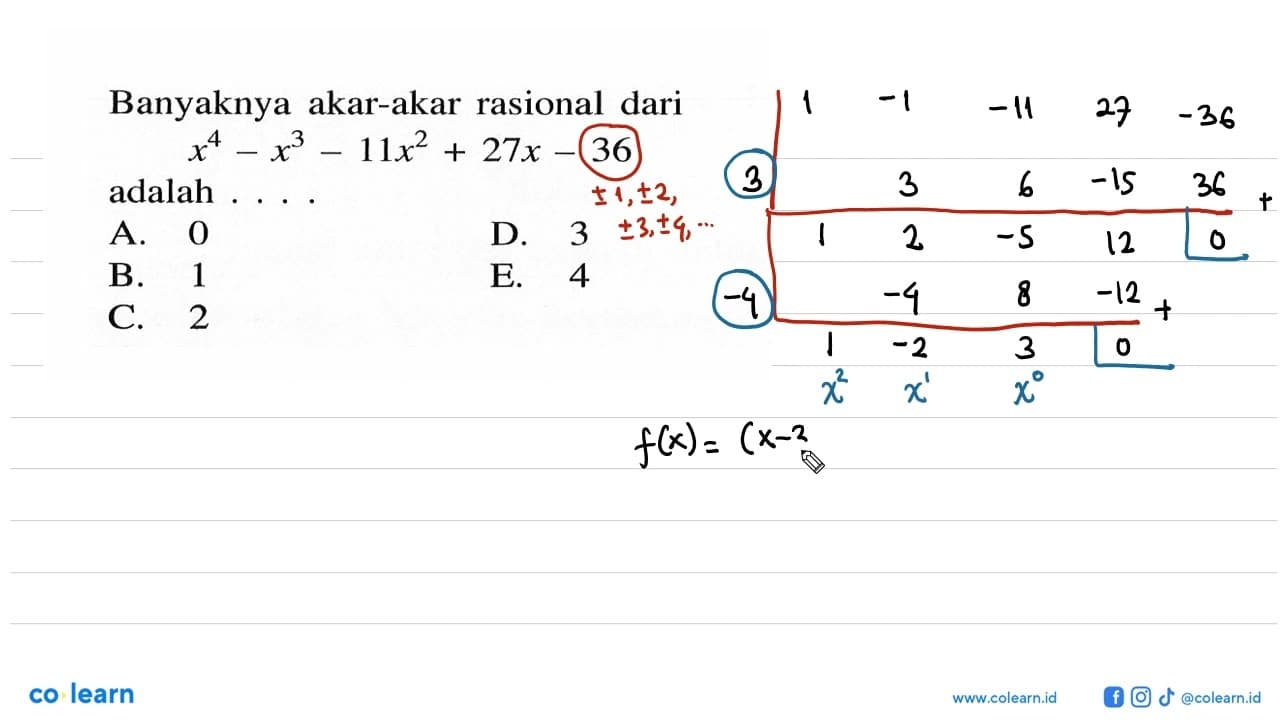 Banyaknya akar-akar rasional dari
x⁴ – x³ – 11x² + 27x – 36
adalah . . . .
±1, ±2,
±3, ±4, ...
A. 0
B. 1
C. 2
D. 3
E. 4
1 -1 -11 27 -36
3 3 6 -15 36 +
1 2 -5 12 0
-4 -4 8 -12 +
1 -2 3 0
x² x¹ x⁰
f(x) = (x-3
co learn
www.colearn.id @colearn.id